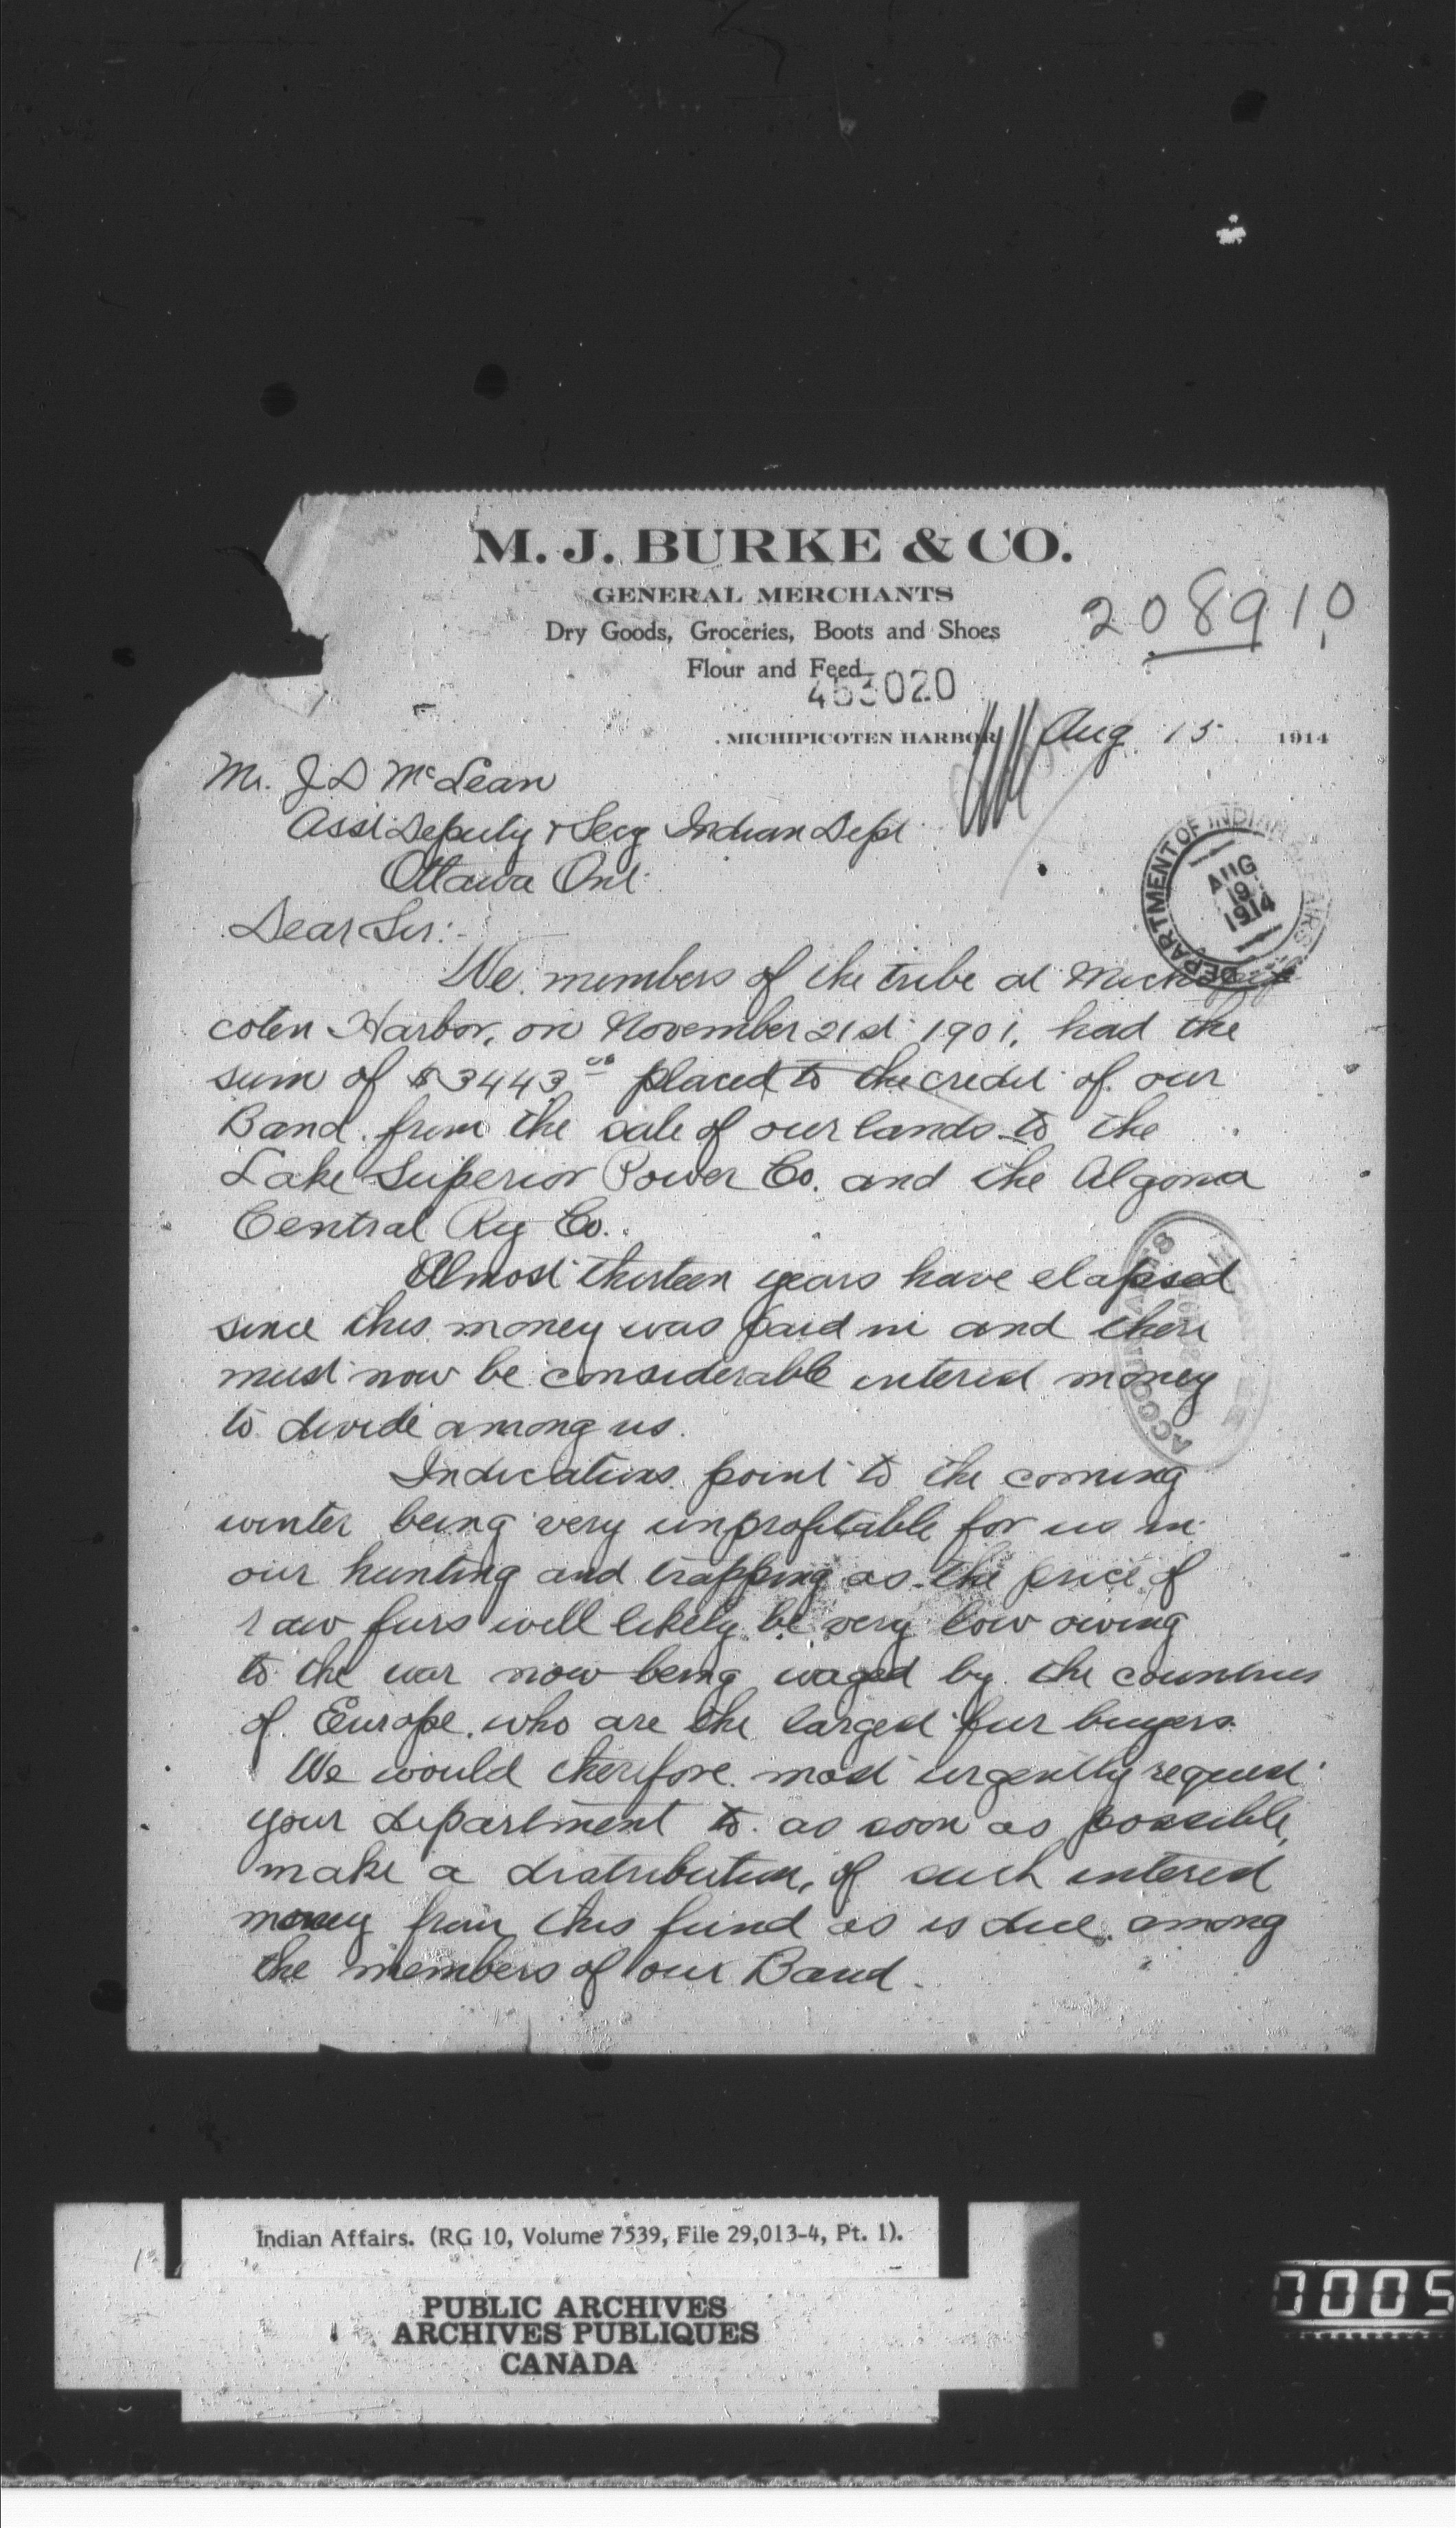 M. J. BURKE & CO.
GENERAL MERCHANTS
Dry Goods, Groceries, Boots and Shoes
Flour and Feed
208910
453020
MICHIPICOTEN HARBOR Aug 15 1914
Mr. J D McLean
Asst Deputy & Secy Indian Dept
Ottawa Ont
DEPARTMENT OF INDIAN AFFAIRS
AUG
19
1914
Dear Sir:-
We members of the tribe at Michipi
coten Harbor, on November 21st 1901, had the
sum of $3443.00 placed to the credit of our
Band from the sale of our lands to the
Lake Superior Power Co. and the Algoma
Central Ry Co.
Almost thirteen years have elapsed
since this money was paid in and there
must now be considerable interest money
to divide among us.
ACCOUNTANT'S
Indications point to the coming
winter being very unprofitable for us in
our hunting and trapping as the price of
raw furs will likely be very low owing
to the war now being waged by the countries
of Europe who are the largest fur buyers.
We would therefore most urgently request
your department to as soon as possible,
make a distribution, of such interest
money from this fund as is due among
the members of our Band.
Indian Affairs. (RG 10, Volume 7539, File 29,013-4, Pt. 1).
PUBLIC ARCHIVES
ARCHIVES PUBLIQUES
CANADA
0005